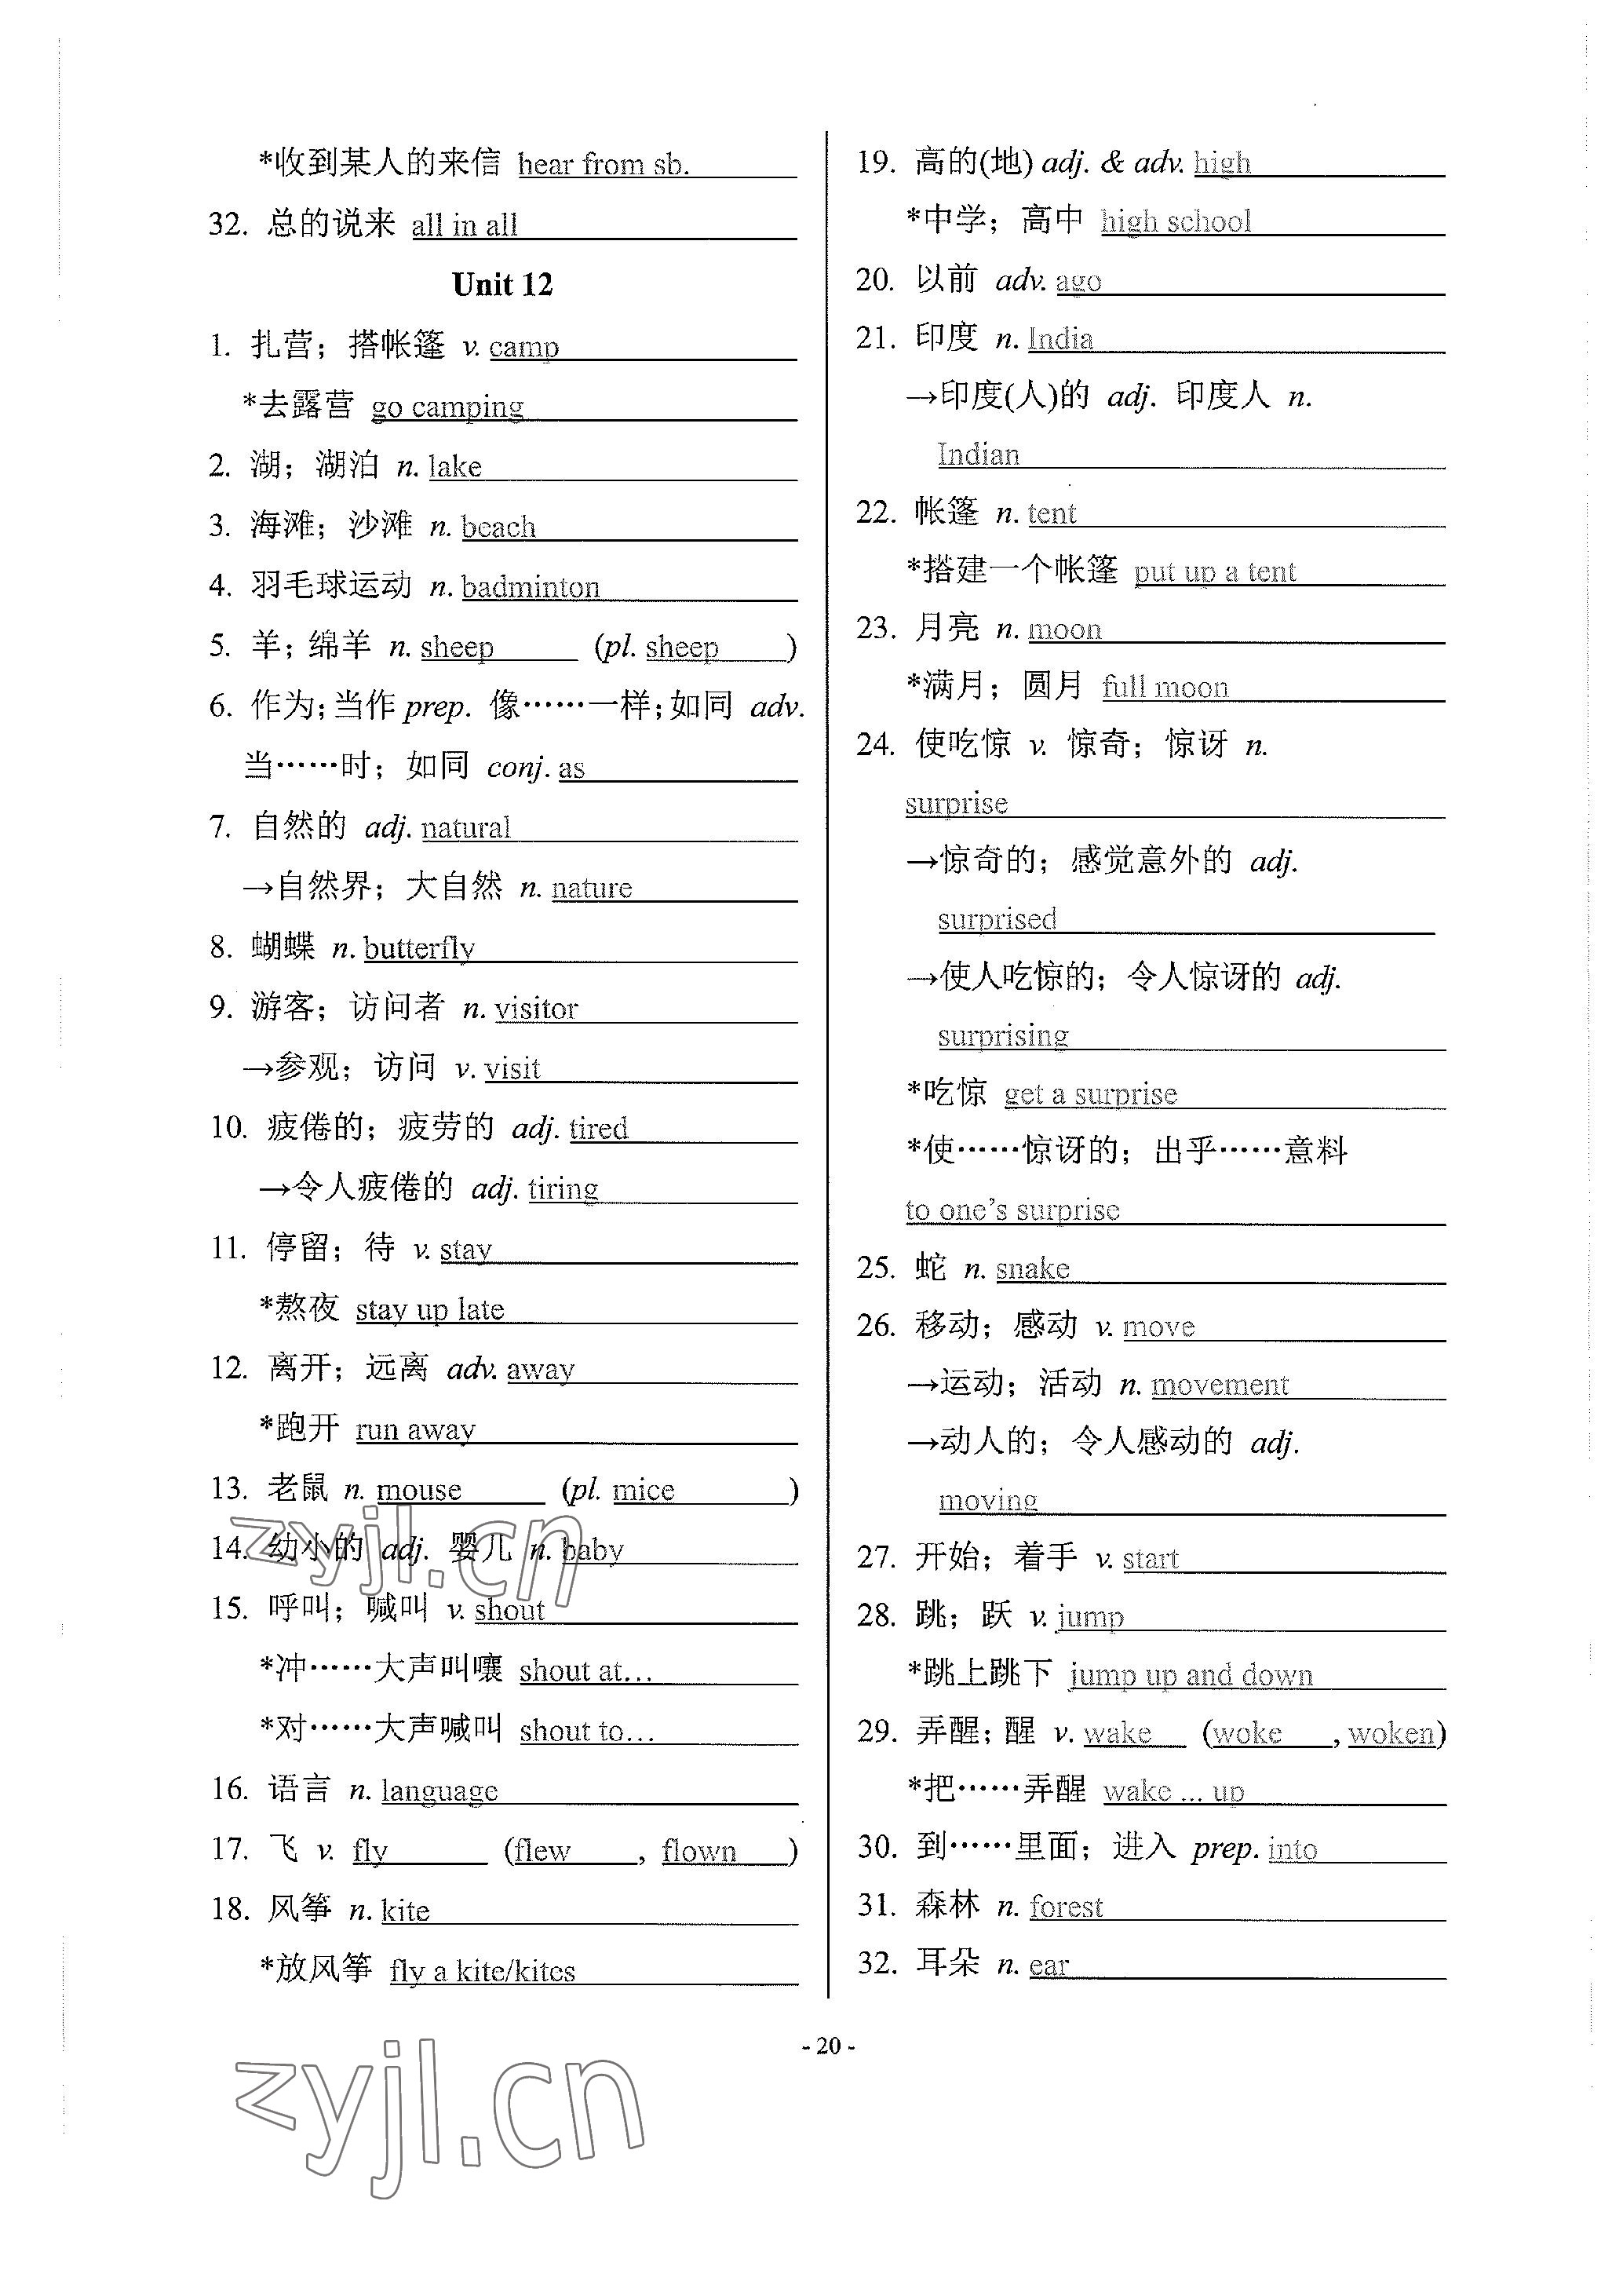 *收到某人的来信 hear from sb.
32. 总的说来 all in all
Unit 12
1. 扎营；搭帐篷 v. camp
*去露营 go camping
2. 湖；湖泊 n. lake
3. 海滩；沙滩 n. beach
4. 羽毛球运动 n. badminton
5. 羊；绵羊 n. sheep (pl. sheep)
6. 作为；当作 prep. 像……一样；如同 adv.
当……时；如同 conj. as
7. 自然的 adj. natural
→自然界；大自然 n. nature
8. 蝴蝶 n. butterfly
9. 游客；访问者 n. visitor
→参观；访问 v. visit
10. 疲倦的；疲劳的 adj. tired
→令人疲倦的 adj. tiring
11. 停留；待 v. stay
*熬夜 stay up late
12. 离开；远离 adv. away
*跑开 run away
13. 老鼠 n. mouse (pl. mice)
14. 幼小的 adj. 婴儿 n. baby
15. 呼叫；喊叫 v. shout
*冲……大声叫嚷 shout at…
*对……大声喊叫 shout to…
16. 语言 n. language
17. 飞 v. fly (flew, flown)
18. 风筝 n. kite
*放风筝 fly a kite/kites
19. 高的(地) adj. & adv. high
*中学；高中 high school
20. 以前 adv. ago
21. 印度 n. India
→印度(人)的 adj. 印度人 n.
Indian
22. 帐篷 n. tent
*搭建一个帐篷 put up a tent
23. 月亮 n. moon
*满月；圆月 full moon
24. 使吃惊 v. 惊奇；惊讶 n.
surprise
→惊奇的；感觉意外的 adj.
surprised
→使人吃惊的；令人惊讶的 adj.
surprising
*吃惊 get a surprise
*使……惊讶的；出乎……意料
to one's surprise
25. 蛇 n. snake
26. 移动；感动 v. move
→运动；活动 n. movement
→动人的；令人感动的 adj.
moving
27. 开始；着手 v. start
28. 跳；跃 v. jump
*跳上跳下 jump up and down
29. 弄醒；醒 v. wake (woke, woken)
*把……弄醒 wake … up
30. 到……里面；进入 prep. into
31. 森林 n. forest
32. 耳朵 n. ear
- 20 -
zyjl.cn
zyjl.cn